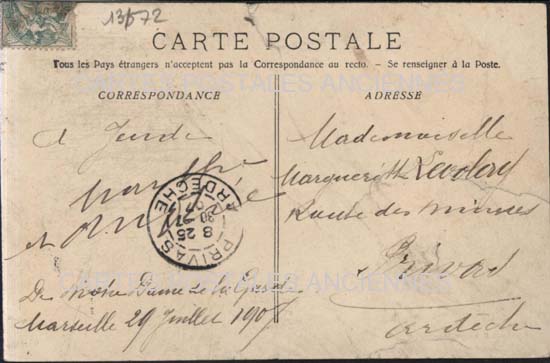 13/572
CARTE POSTALE
Tous les Pays étrangers n'acceptent pas la Correspondance au recto. - Se renseigner à la Poste.
CORRESPONDANCE
ADRESSE
CARTES POSTALES ANCIENNES
a Jeudi
et
PRIVAS
8 25
ARDECHE
De Notre Dame de la Garde
Marseille 29 Juillet 190
Mademoiselle
Marguerite
Route des Mines
Privas
Ardèche
CARTES POSTALES ANCIENNES